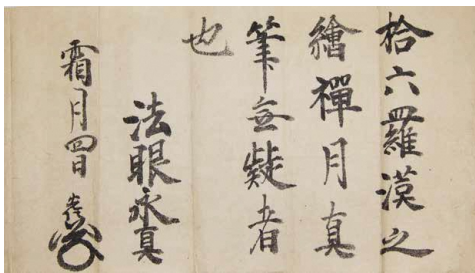 拾六羅漢之
繪禪月真
筆無疑者
也
法眼永真
霜月四日